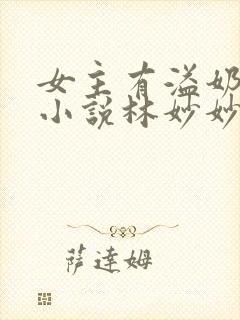 女主有溢奶
小说林妙妙
萨达姆